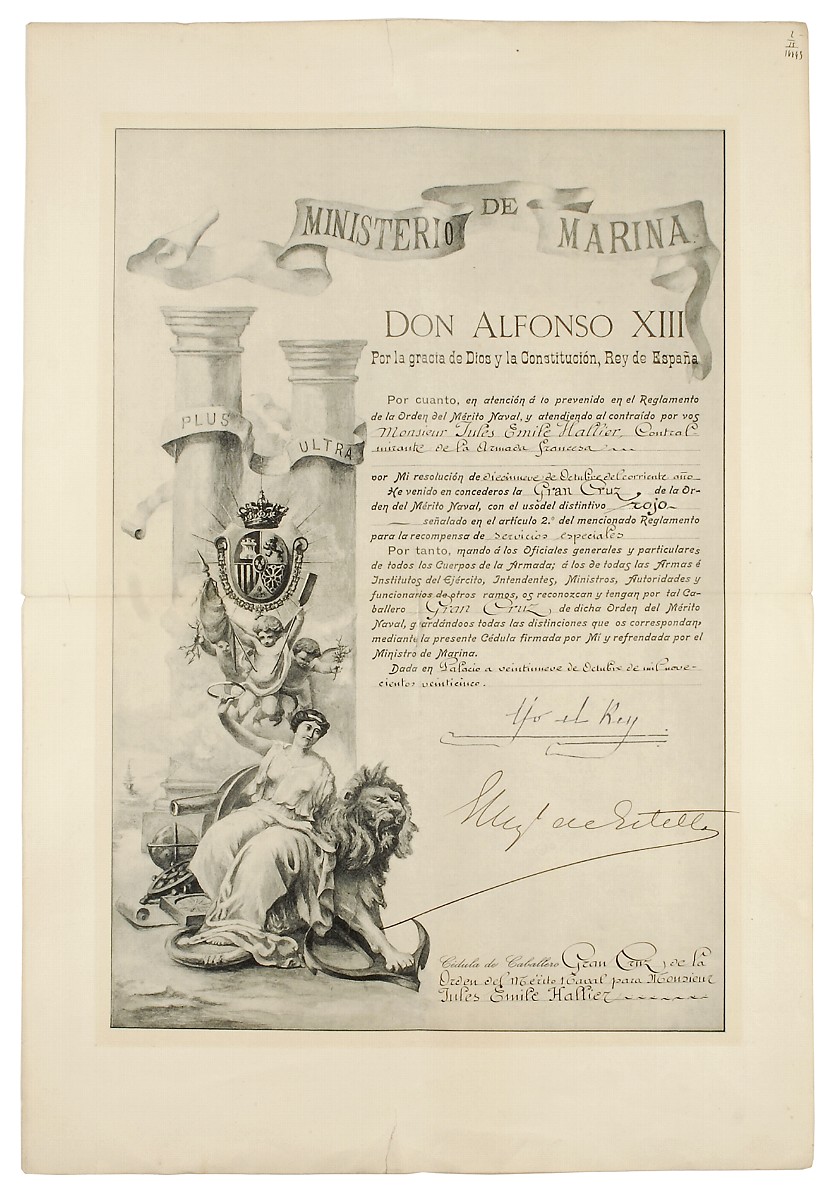 MINISTERIO DE MARINA.
DON ALFONSO XIII
Por la gracia de Dios y la Constitución, Rey de España
PLUS
ULTRA
Por cuanto, en atención á lo prevenido en el Reglamento
de la Orden del Mérito Naval, y atendiendo al contraido por vos
Monsieur Jules Emile Hallier, Contral-
mirante de la Armada francesa
por Mi resolución de diecinueve de Octubre del corriente año
He venido en concederos la Gran Cruz de la Or-
den del Mérito Naval, con el uso del distintivo rojo
señalado en el artículo 2.º del mencionado Reglamento
para la recompensa de servicios especiales
Por tanto, mando á los Oficiales generales y particulares
de todos los Cuerpos de la Armada; á los de todas las Armas é
Institutos del Ejército, Intendentes, Ministros, Autoridades y
funcionarios de otros ramos, os reconozcan y tengan por tal Ca-
ballero Gran Cruz, de dicha Orden del Mérito
Naval, guardándoos todas las distinciones que os correspondan,
mediante la presente Cédula firmada por Mí y refrendada por el
Ministro de Marina.
Dada en Palacio a veintinueve de Octubre de mil nove-
cientos veinticinco.
Yo el Rey
de Estella
Cédula de Caballero Gran Cruz, de la
Orden del Mérito Naval para Monsieur
Jules Emile Hallier